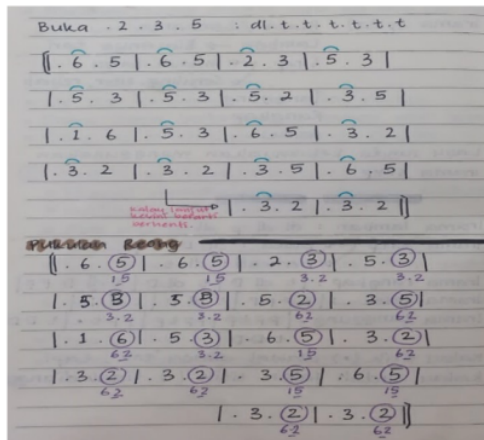 Buka . 2 . 3 . 5 : dl. t. t. t. t. t. t
[| . 6 . 5 | . 6 . 5 | . 2 . 3 | . 5 . 3 |
| . 5 . 3 | . 5 . 3 | . 5 . 2 | . 3 . 5 |
| . 1 . 6 | . 5 . 3 | . 6 . 5 | . 3 . 2 |
| . 3 . 2 | . 3 . 2 | . 3 . 5 | . 6 . 5 |
| . 3 . 2 | . 3 . 2 |]
berhenti.
Pukulan
[| . 6 . 5 | . 6 . 5 | . 2 . 3 | . 5 . 3 |
15 15 3.2 3.2
| . 5 . 3 | . 5 . 3 | . 5 . 2 | . 3 . 5 |
3.2 3.2 62 62
| . 1 . 6 | . 5 . 3 | . 6 . 5 | . 3 . 2 |
62 3.2 15 62
| . 3 . 2 | . 3 . 2 | . 3 . 5 | . 6 . 5 |
62 62 15 15
| . 3 . 2 | . 3 . 2 |]
62 62